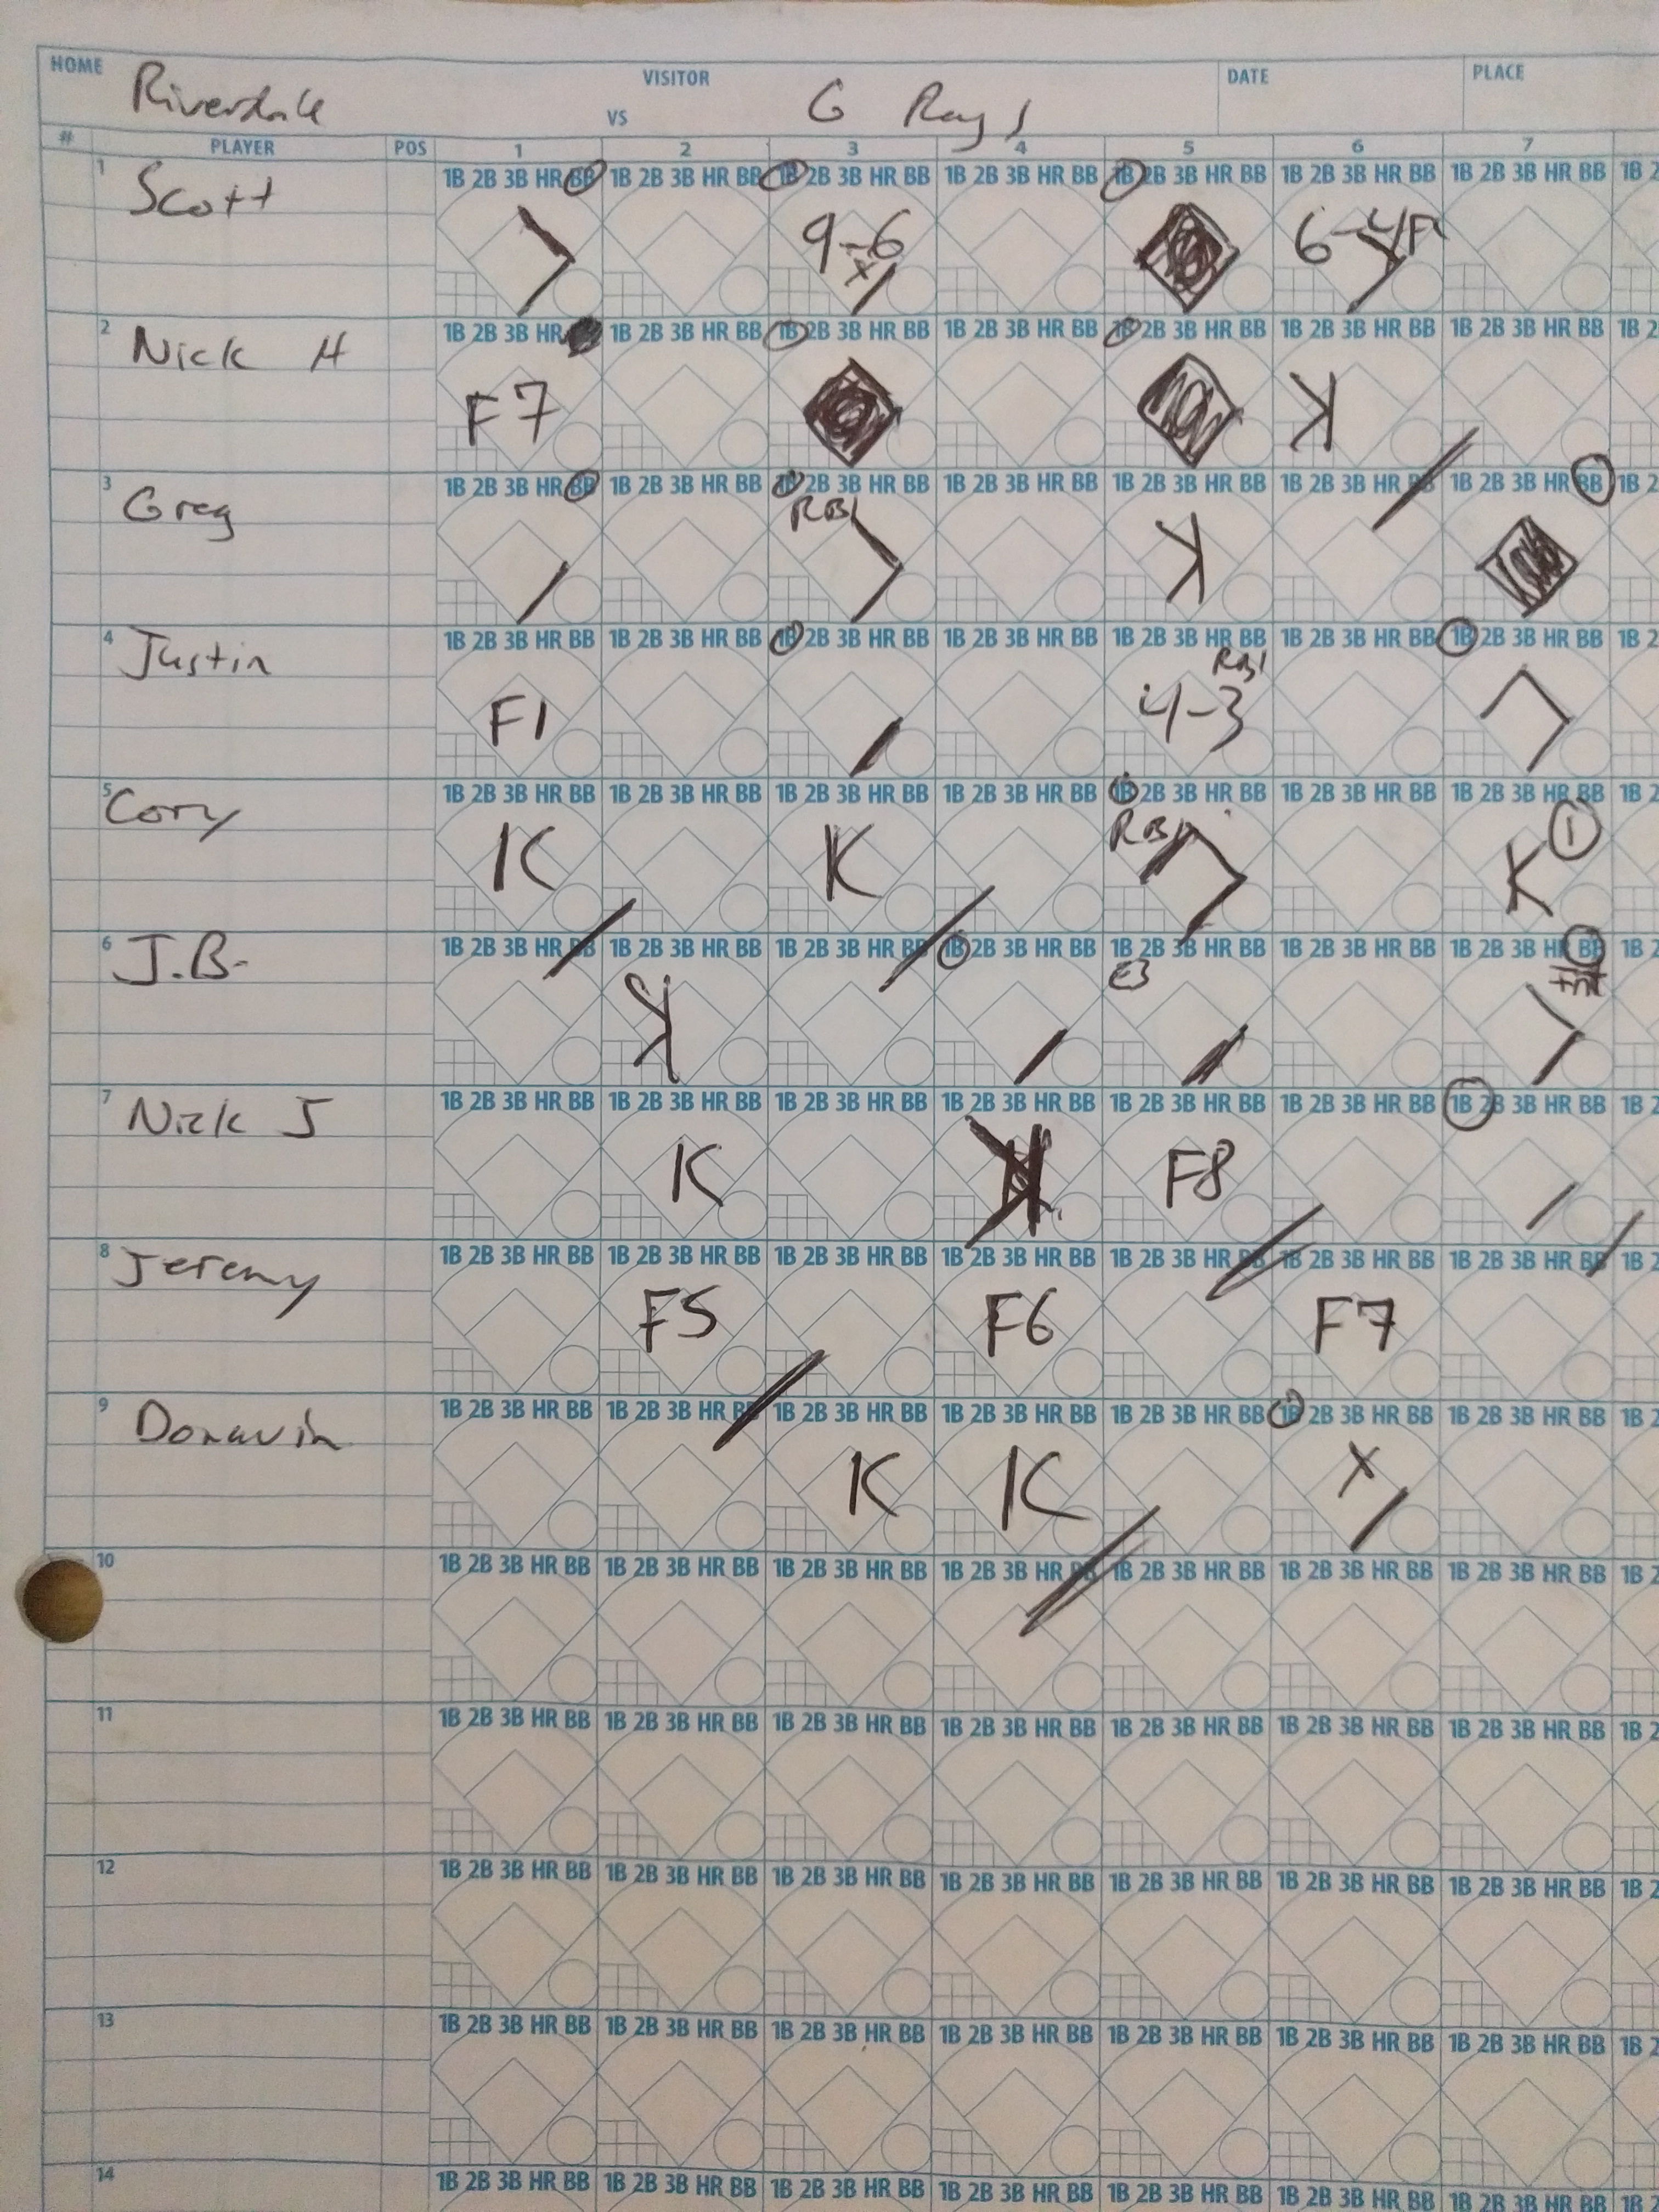 HOME Riverdale VISITOR VS G Rays DATE PLACE
# PLAYER POS 1 2 3 4 5 6 7
1 Scott 1B 2B 3B HR BB 1B 2B 3B HR BB 1B 2B 3B HR BB 1B 2B 3B HR BB 1B 2B 3B HR BB 1B 2B 3B HR BB 1B 2B 3B HR BB 1B 2
9-6 6-4
2 Nick H 1B 2B 3B HR 1B 2B 3B HR BB 1B 2B 3B HR BB 1B 2B 3B HR BB 1B 2B 3B HR BB 1B 2B 3B HR BB 1B 2B 3B HR BB 1B 2
F7 K
3 Greg 1B 2B 3B HR BB 1B 2B 3B HR BB 1B 2B 3B HR BB 1B 2B 3B HR BB 1B 2B 3B HR BB 1B 2B 3B HR BB 1B 2B 3B HR BB 1B 2
RBI K
4 Justin 1B 2B 3B HR BB 1B 2B 3B HR BB 1B 2B 3B HR BB 1B 2B 3B HR BB 1B 2B 3B HR BB 1B 2B 3B HR BB 1B 2B 3B HR BB 1B 2
RBI
F1 4-3
5 Cory 1B 2B 3B HR BB 1B 2B 3B HR BB 1B 2B 3B HR BB 1B 2B 3B HR BB 1B 2B 3B HR BB 1B 2B 3B HR BB 1B 2B 3B HR BB 1B 2
K K RBI K 1
6 J.B. 1B 2B 3B HR BB 1B 2B 3B HR BB 1B 2B 3B HR BB 1B 2B 3B HR BB 1B 2B 3B HR BB 1B 2B 3B HR BB 1B 2B 3B HR BB 1B 2
K E3
7 Nick J 1B 2B 3B HR BB 1B 2B 3B HR BB 1B 2B 3B HR BB 1B 2B 3B HR BB 1B 2B 3B HR BB 1B 2B 3B HR BB 1B 2B 3B HR BB 1B 2
K F8
8 Jeremy 1B 2B 3B HR BB 1B 2B 3B HR BB 1B 2B 3B HR BB 1B 2B 3B HR BB 1B 2B 3B HR BB 1B 2B 3B HR BB 1B 2B 3B HR BB 1B 2
F5 F6 F7
9 Donavin 1B 2B 3B HR BB 1B 2B 3B HR BB 1B 2B 3B HR BB 1B 2B 3B HR BB 1B 2B 3B HR BB 1B 2B 3B HR BB 1B 2B 3B HR BB 1B 2
K K X
10 1B 2B 3B HR BB 1B 2B 3B HR BB 1B 2B 3B HR BB 1B 2B 3B HR BB 1B 2B 3B HR BB 1B 2B 3B HR BB 1B 2B 3B HR BB 1B 2
11 1B 2B 3B HR BB 1B 2B 3B HR BB 1B 2B 3B HR BB 1B 2B 3B HR BB 1B 2B 3B HR BB 1B 2B 3B HR BB 1B 2B 3B HR BB 1B 2
12 1B 2B 3B HR BB 1B 2B 3B HR BB 1B 2B 3B HR BB 1B 2B 3B HR BB 1B 2B 3B HR BB 1B 2B 3B HR BB 1B 2B 3B HR BB 1B 2
13 1B 2B 3B HR BB 1B 2B 3B HR BB 1B 2B 3B HR BB 1B 2B 3B HR BB 1B 2B 3B HR BB 1B 2B 3B HR BB 1B 2B 3B HR BB 1B 2
14 1B 2B 3B HR BB 1B 2B 3B HR BB 1B 2B 3B HR BB 1B 2B 3B HR BB 1B 2B 3B HR BB 1B 2B 3B HR BB 1B 2B 3B HR BB 1B 2